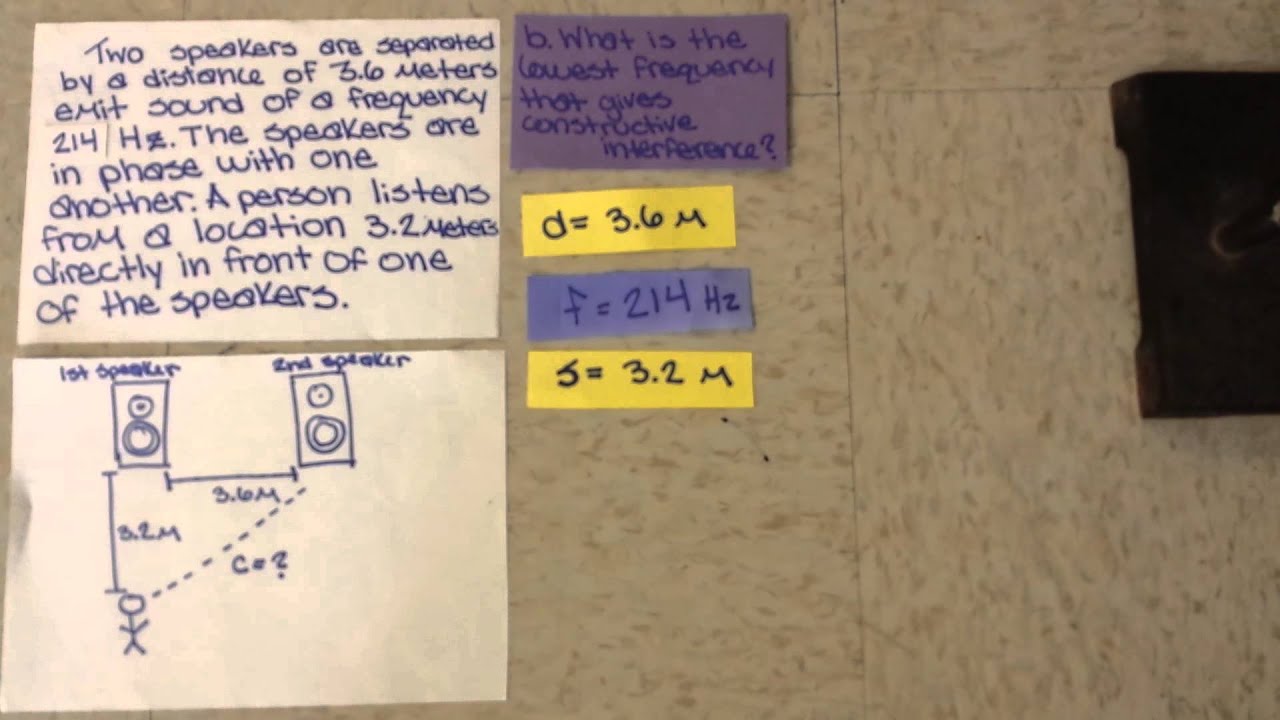 Two speakers are separated
by a distance of 3.6 meters
emit sound of a frequency
214 Hz. The speakers are
in phase with one
another. A person listens
from a location 3.2 meters
directly in front of one
of the speakers.
b. What is the
lowest frequency
that gives
constructive
interference?
d = 3.6 m
f = 214 Hz
s = 3.2 m
1st speaker
2nd speaker
3.6 m
3.2 m
c = ?